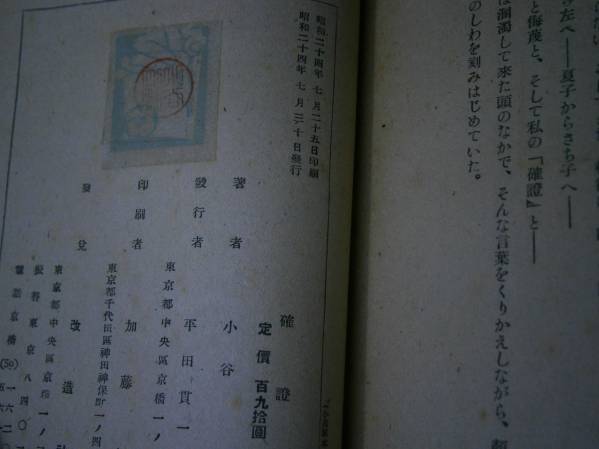 左へ――夏子からさち子へ――
と侮蔑と、そして私の『確證』と――
は溷濁して来た頭のなかで、そんな言葉をくりかえしながら、
のしわを刻みはじめていた。
昭和二十四年 七月二十五日印刷
昭和二十四年 七月三十日發行
確證
定價 百九拾圓
著者 小谷
發行者 平田貫一
東京都中央區京橋一ノ
印刷者 加藤
東京都千代田區神田神保町一ノ四
發兌 改造社
東京都中央區京橋一ノ
振替東京八四〇
電話京橋(56)一六二〇